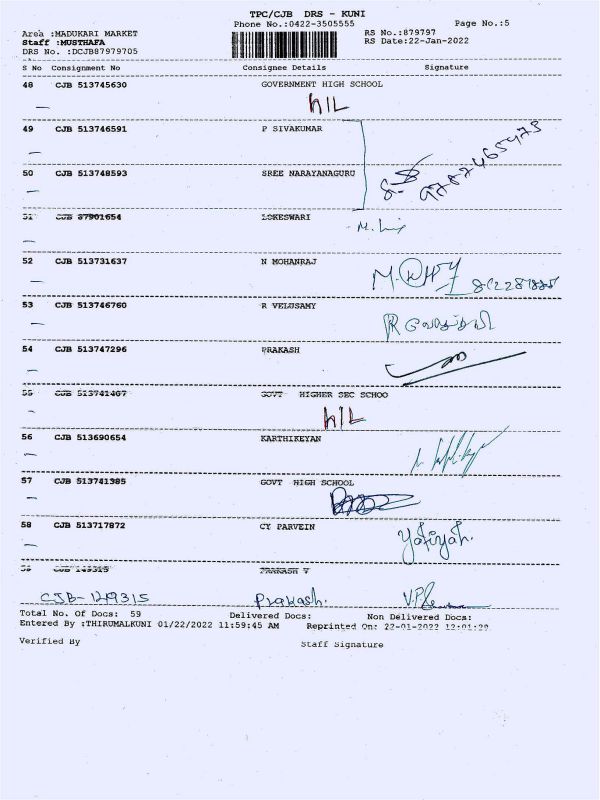 TPC/CJB DRS - KUNI
Phone No.:0422-3505555 Page No.:5
Area :MADUKARI MARKET RS No.:879797
Staff :MUSTHAFA RS Date:22-Jan-2022
DRS No. :DCJB87979705
S No Consignment No Consignee Details Signature
48 CJB 513745630 GOVERNMENT HIGH SCHOOL
h/L
49 CJB 513746591 P SIVAKUMAR
50 CJB 513748593 SREE NARAYANAGURU
51 CJB 87901654 LOKESWARI
52 CJB 513731637 N MOHANRAJ
53 CJB 513746760 R VELUSAMY
54 CJB 513747296 PRAKASH
55 CJB 513741407 GOVT HIGHER SEC SCHOO
h/L
56 CJB 513690654 KARTHIKEYAN
57 CJB 513741385 GOVT HIGH SCHOOL
58 CJB 513717872 CY PARVEIN
59 CJB 149315 PRAKASH V
CJB-149315 Prakash.
Total No. Of Docs: 59 Delivered Docs: Non Delivered Docs:
Entered By :THIRUMALKUNI 01/22/2022 11:59:45 AM Reprinted On: 22-01-2022 12:01:29
Verified By Staff Signature